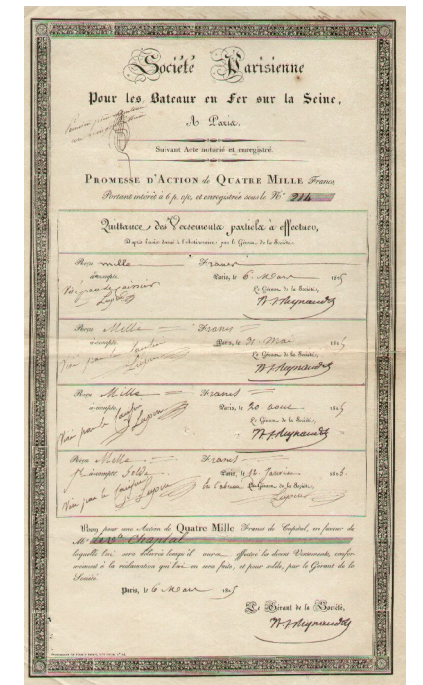 Société Parisienne
Pour les Bateaux en Fer sur la Seine,
A Paris.
Suivant Acte notarié et enregistré.
PROMESSE D'ACTION de QUATRE MILLE Francs
Portant intérêt à 6 p. o/o, et enregistrée sous le N° 214
Quittance des Versements partiels à effectuer,
D'après l'avis donné à l'actionnaire par le Gérant de la Société.
Reçu mille Francs
à compte Paris, le 6 Mars 1825
Le Gérant de la Société,
Reçu Mille Francs
à compte Paris, le 31 Mai 1825
Le Gérant de la Société,
Reçu Mille Francs
à compte Paris, le 20 aout 1825
Le Gérant de la Société,
Reçu Mille Francs
à compte Solde Paris, le 14 Janvier 1826
Le Gérant de la Société,
Bon pour une Action de Quatre Mille Francs de Capital, en faveur de
M. Chaptal
laquelle lui sera délivrée lorsqu'il aura effectué les divers Versements, confor-
mément à la réclamation qui lui en sera faite, et pour solde, par le Gérant de la
Société.
Paris, le 6 Mars 1825
Le Gérant de la Société,